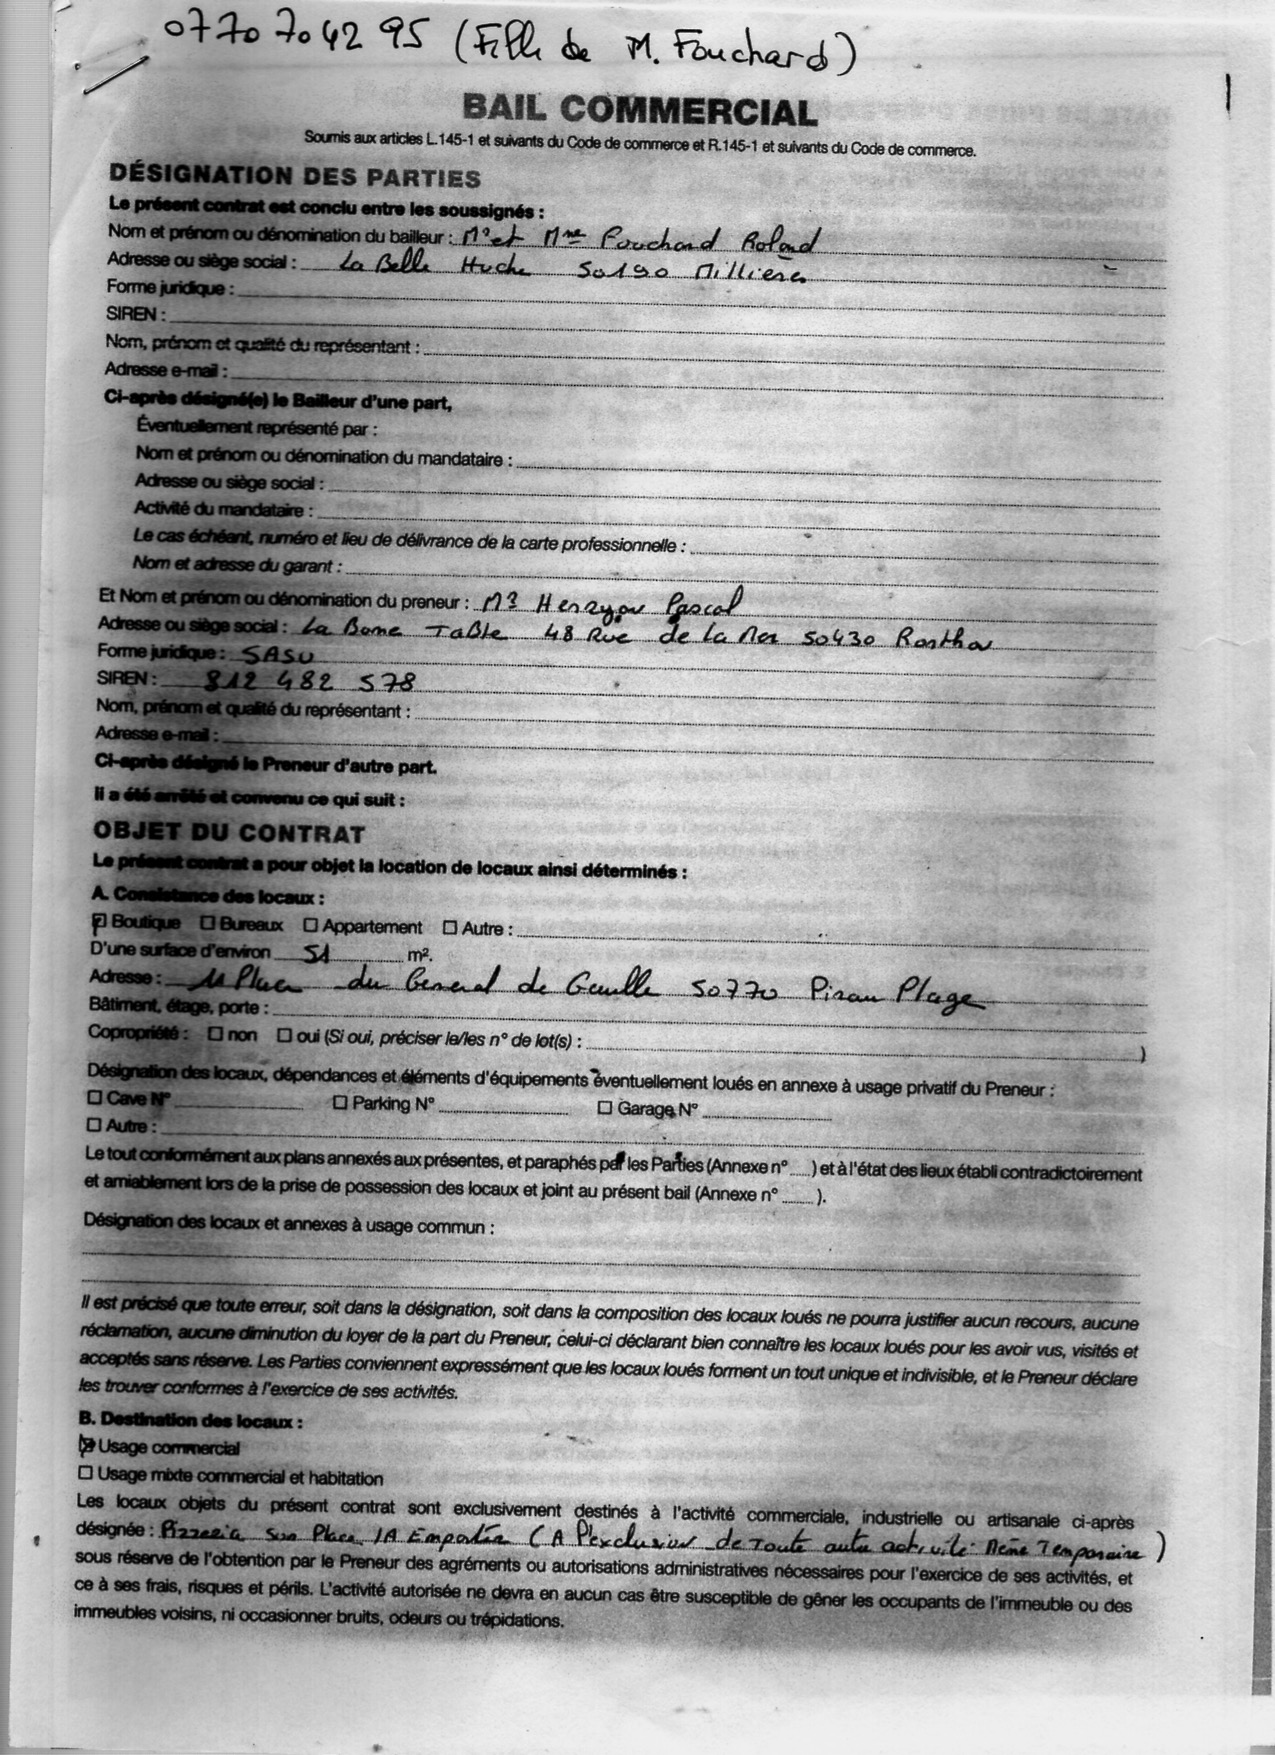 0770704295 (Fille de M. Fouchard)
BAIL COMMERCIAL
Soumis aux articles L.145-1 et suivants du Code de commerce et R.145-1 et suivants du Code de commerce.
DÉSIGNATION DES PARTIES
Le présent contrat est conclu entre les soussignés :
Nom et prénom ou dénomination du bailleur : Mr et Mme Fouchard Roland
Adresse ou siège social : La Belle Huche 50190 Millières
Forme juridique :
SIREN :
Nom, prénom et qualité du représentant :
Adresse e-mail :
Ci-après désigné(e) le Bailleur d'une part,
Éventuellement représenté par :
Nom et prénom ou dénomination du mandataire :
Adresse ou siège social :
Activité du mandataire :
Le cas échéant, numéro et lieu de délivrance de la carte professionnelle :
Nom et adresse du garant :
Et Nom et prénom ou dénomination du preneur : Mr Pascal
Adresse ou siège social : La Bonne Table 48 Rue de la Mer 50430
Forme juridique : SASU
SIREN : 812 482 578
Nom, prénom et qualité du représentant :
Adresse e-mail :
Ci-après désigné le Preneur d'autre part.
Il a été arrêté et convenu ce qui suit :
OBJET DU CONTRAT
Le présent contrat a pour objet la location de locaux ainsi déterminés :
A. Consistance des locaux :
☑ Boutique ☐ Bureaux ☐ Appartement ☐ Autre :
D'une surface d'environ 51 m².
Adresse : 11 Place du General de Gaulle 50770 Pirou Plage
Bâtiment, étage, porte :
Copropriété : ☐ non ☐ oui (Si oui, préciser le/les n° de lot(s) : )
Désignation des locaux, dépendances et éléments d'équipements éventuellement loués en annexe à usage privatif du Preneur :
☐ Cave N° ☐ Parking N° ☐ Garage N°
☐ Autre :
Le tout conformément aux plans annexés aux présentes, et paraphés par les Parties (Annexe n° ) et à l'état des lieux établi contradictoirement
et amiablement lors de la prise de possession des locaux et joint au présent bail (Annexe n° ).
Désignation des locaux et annexes à usage commun :
Il est précisé que toute erreur, soit dans la désignation, soit dans la composition des locaux loués ne pourra justifier aucun recours, aucune
réclamation, aucune diminution du loyer de la part du Preneur, celui-ci déclarant bien connaître les locaux loués pour les avoir vus, visités et
acceptés sans réserve. Les Parties conviennent expressément que les locaux loués forment un tout unique et indivisible, et le Preneur déclare
les trouver conformes à l'exercice de ses activités.
B. Destination des locaux :
☑ Usage commercial
☐ Usage mixte commercial et habitation
Les locaux objets du présent contrat sont exclusivement destinés à l'activité commerciale, industrielle ou artisanale ci-après
désignée : Pizzeria Sur Place /A Emporter (A l'exclusion de toute autre activité même Temporaire)
sous réserve de l'obtention par le Preneur des agréments ou autorisations administratives nécessaires pour l'exercice de ses activités, et
ce à ses frais, risques et périls. L'activité autorisée ne devra en aucun cas être susceptible de gêner les occupants de l'immeuble ou des
immeubles voisins, ni occasionner bruits, odeurs ou trépidations.